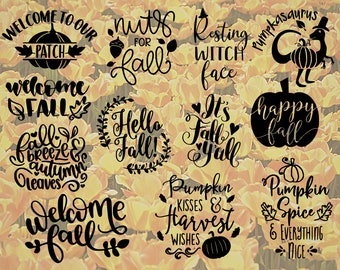 WELCOME TO OUR
PATCH
nuts
FOR
fall
Resting
WITCH
face
Pumpkasaurus
welcome
FALL
Hello
Fall!
It's
Fall
Y'all
happy
fall
fall
BREEZE &
autumn
leaves
welcome
fall
Pumpkin
KISSES &
Harvest
WISHES
Pumpkin
Spice
&
EVERYTHING
NICE